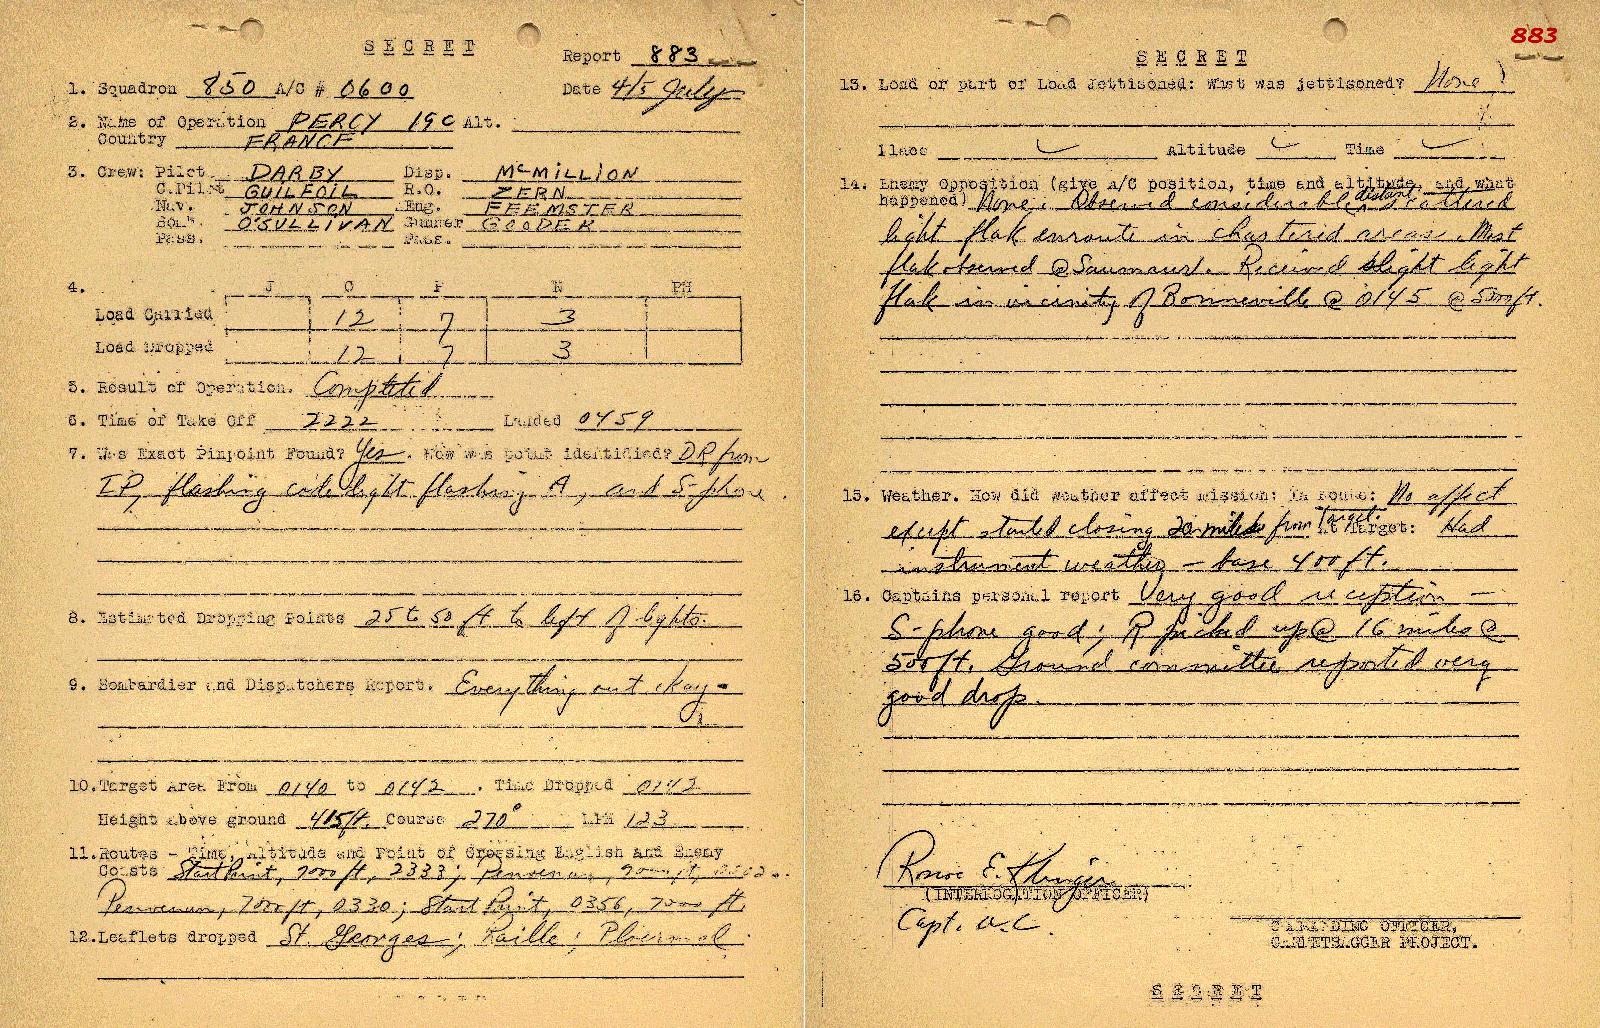 SECRET
Report 883
1. Squadron 850 A/C # 0600 Date 4/5 July
2. Name of Operation PERCY 19C Alt.
Country FRANCE
3. Crew: Pilot DARBY Disp. McMILLION
C.Pilot GUILFOIL R.O. ZERN
Nav. JOHNSON Eng. FEEMSTER
Bom. O'SULLIVAN Gunner GOODER
Pass. Pass.
4. J C P N PH
Load Carried 12 7 3
Load Dropped 12 7 3
5. Result of Operation. Completed
6. Time of Take Off 2222 Landed 0459
7. Was Exact Pinpoint Found? Yes. How was point identified? DR from
IP, flashing code light flashing A, and S-phone.
8. Estimated Dropping Points 25 to 50 ft to left of lights.
9. Bombardier and Dispatchers Report. Everything out okay-
10. Target Area From 0140 to 0142. Time Dropped 0142
Height above ground 415 ft. Course 270° 123
11. Routes - Time, Altitude and Point of Crossing English and Enemy
Coasts Start Point, 7000 ft, 2333; Penvenan,
Penvenan, 7000 ft, 0330; Start Point, 0356, 7000 ft.
12. Leaflets dropped St. Georges;
883
SECRET
13. Load or part of Load Jettisoned: What was jettisoned? None
Place Altitude Time
14. Enemy Opposition (give A/C position, time and altitude, and what
happened) None: Observed considerable distant scattered
light flak enroute in chartered areas. Most
flak observed @ Saumaur. Received slight light
flak in vicinity of Bonneville @ 0145 @ 500 ft.
15. Weather. How did weather affect mission: In Route: No affect
except started closing 20 miles from Target. At Target: Had
instrument weather - base 400 ft.
16. Captains personal report Very good reception -
S-phone good; R picked up @ 16 miles @
500 ft. Ground committee reported very
good drop.
Roscoe E.
(INTERROGATION OFFICER)
Capt. A.C.
COMMANDING OFFICER,
CARPETBAGGER PROJECT.
SECRET